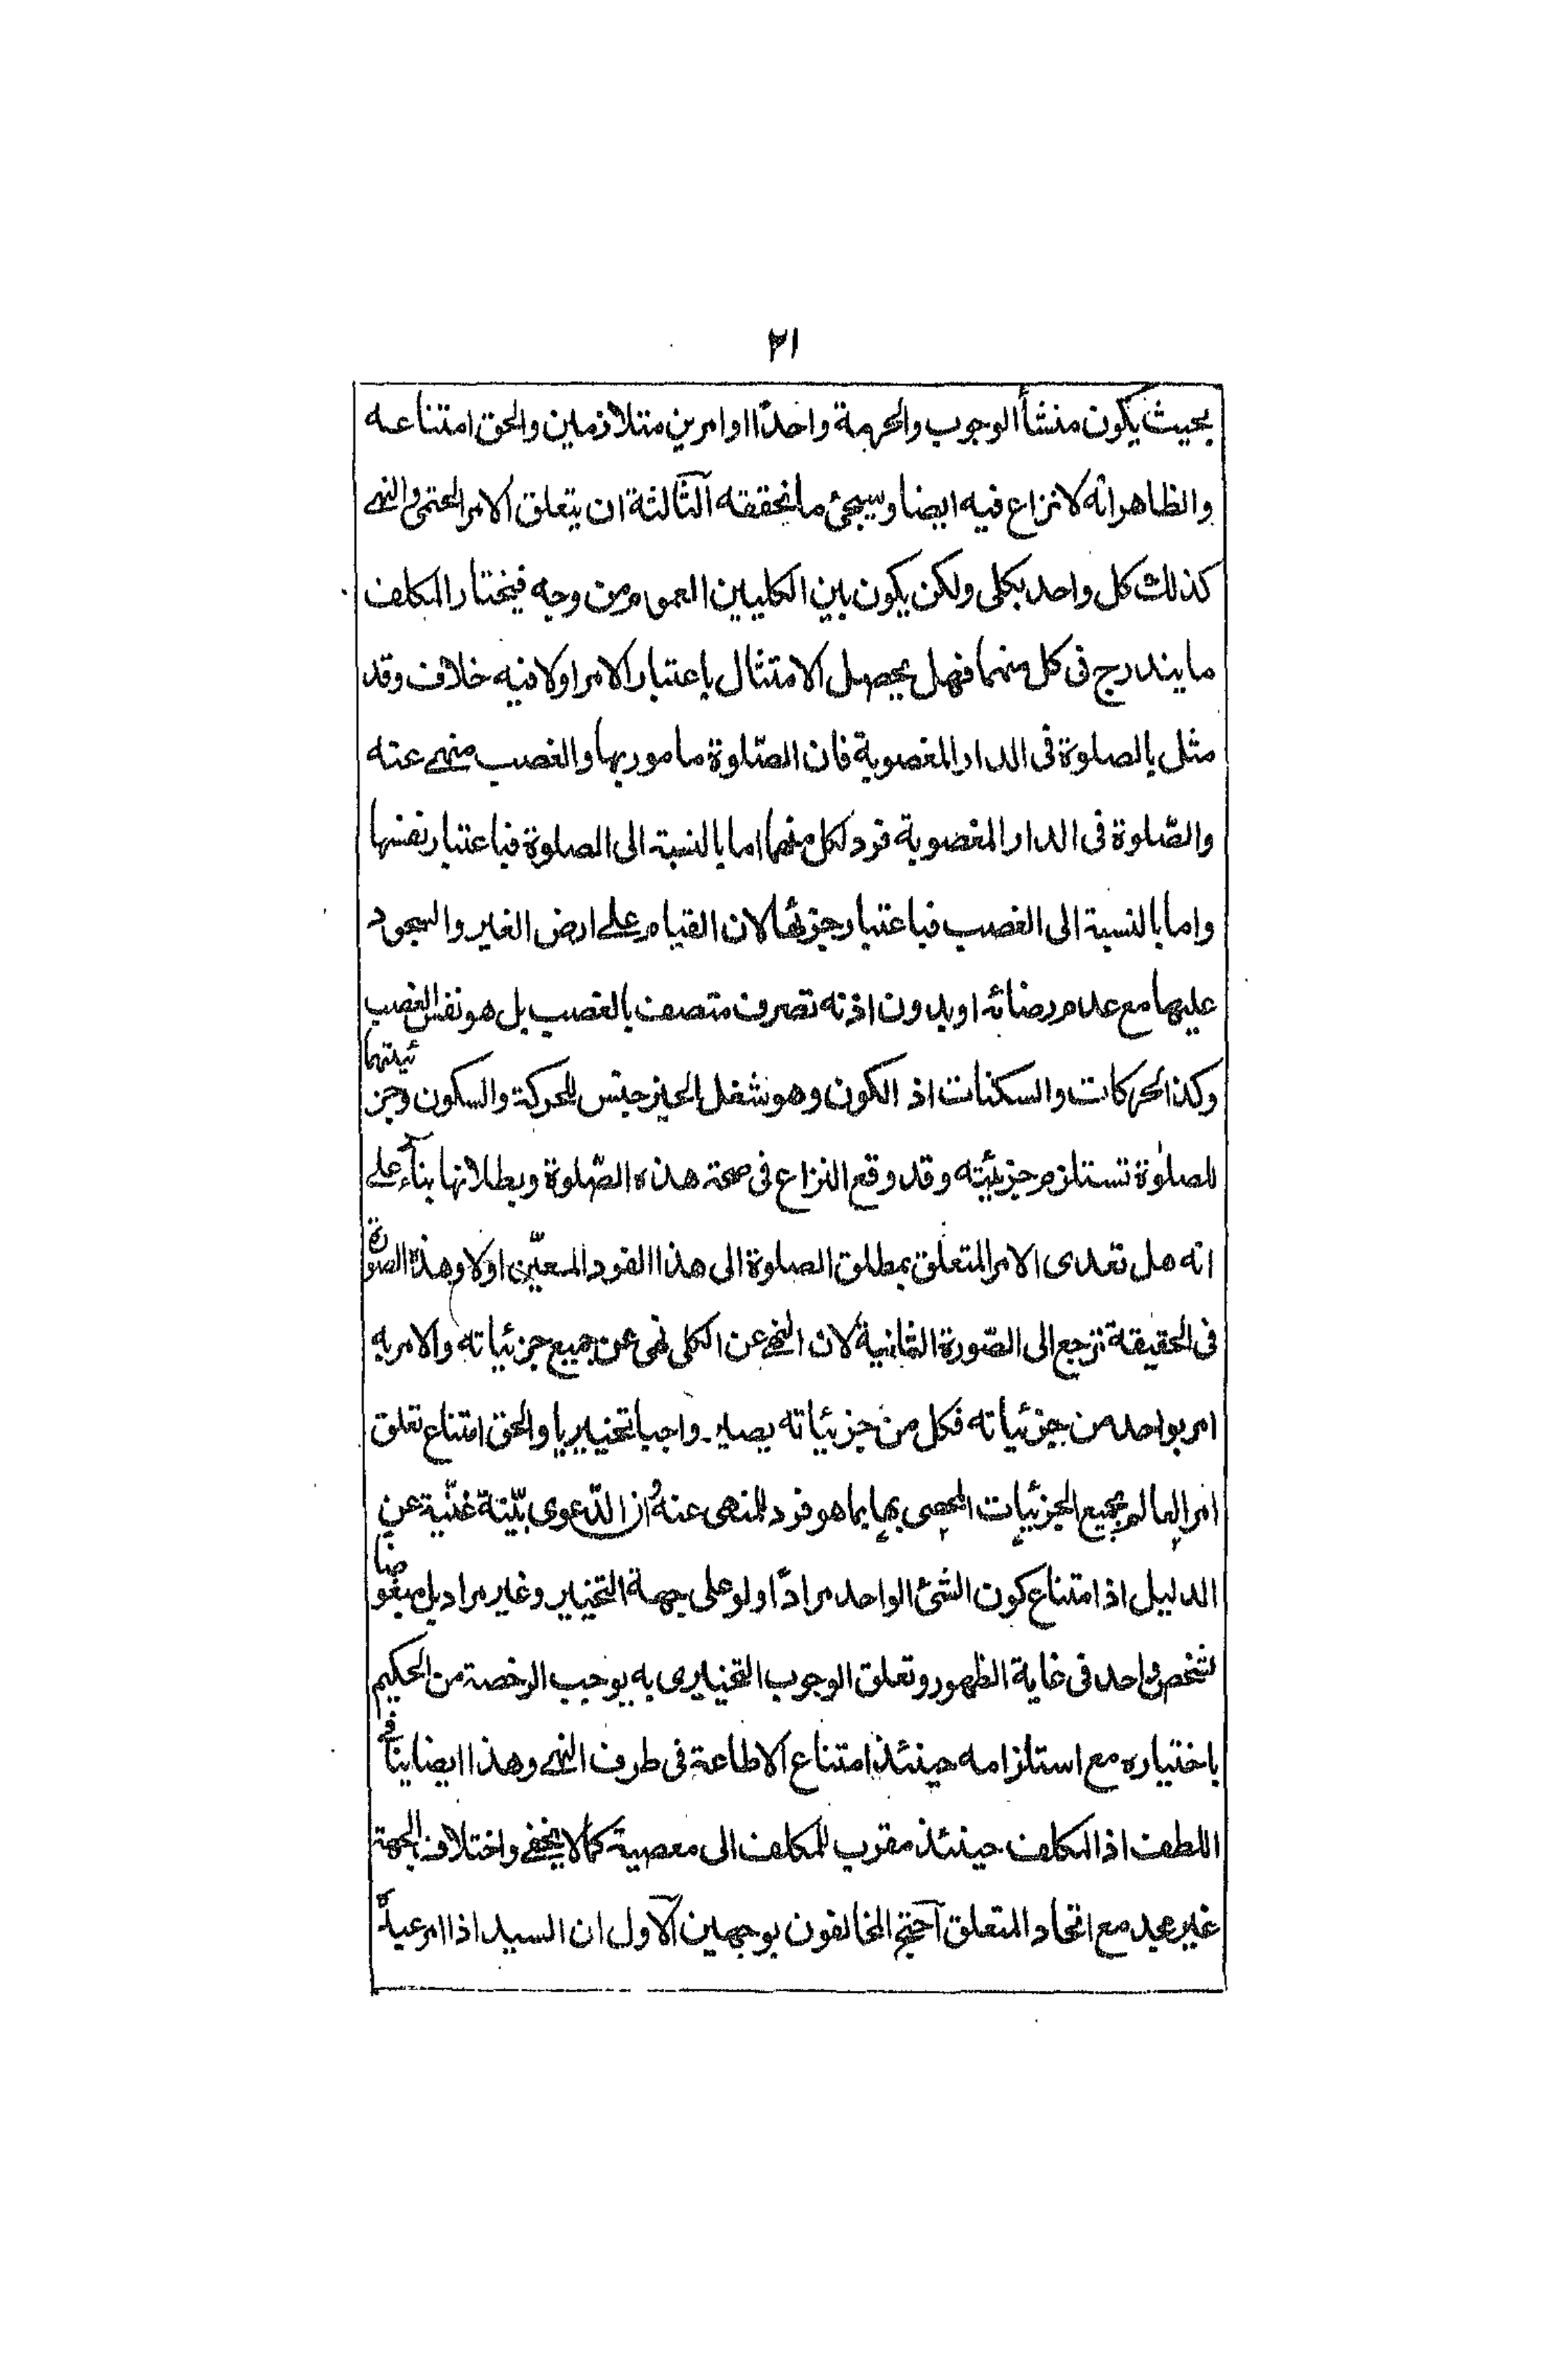 ٢١
بحيث يكون منشأ الوجوب والحرمة واحدًا او امرين متلازمين والحق امتناعه
والظاهر انه لا نزاع فيه ايضا وسيجئ ما نحققه الثّالثة ان يتعلق الامر الحتمى والنهى
كذلك كل واحد بكلى ولكن يكون بين الكليين العموم من وجه فيختار المكلف
ما يندرج فى كل منهما فهل يحصل الامتثال باعتبار الامر اولا فيه خلاف وقد
مثل بالصلوة فى الدار المغصوبة فان الصّلوة مامور بها والغصب منهى عنه
والصّلوة فى الدار المغصوبة فرد لكل منهما اما بالنسبة الى الصلوة فباعتبار نفسها
واما بالنسبة الى الغصب فباعتبار جزئها لان القيام على ارض الغير والسجود
عليها مع عدم رضائه او بدون اذنه تصرف متصف بالغصب بل هو نفس الغصب
وكذا الحركات والسكنات اذ الكون وهو شغل الحيز جنس للحركة والسكون وجزئيتهما
للصلوٰة تستلزم جزئيته وقد وقع النزاع فى صحة هذه الصّلوة وبطلانها بناءً على
انه هل تعدى الامر المتعلق بمطلق الصلوة الى هذا الفرد المعيّن اولا وهذه الصورة
فى الحقيقة ترجع الى الصّورة الثانية لان النهى عن الكلى نهى عن جميع جزئياته والامر به
امر بواحد من جزئياته فكل من جزئياته يصير واجبا تخييريا والحق امتناع تعلق
امر العالم بجميع الجزئيات المحصى بها بما هو فرد للمنهى عنه اذ الدّعوى بيّنة غنّية عن
الدليل اذ امتناع كون الشئ الواحد مرادًا ولو على جهة التخيير وغير مراد بل مبغوضا
لشخص واحد فى غاية الظهور وتعلق الوجوب التخييرى به يوجب الرخصة من الحكيم
باختياره مع استلزامه حينئذ امتناع الاطاعة فى طرف النهى وهذا ايضا ينافى
اللطف اذ المكلف حينئذ مقرب للمكلف الى معصية كما لا يخفى واختلاف الجهة
غير مجد مع اتحاد المتعلق احتج المخالفون بوجهين الاول ان السيد اذا امر عبده